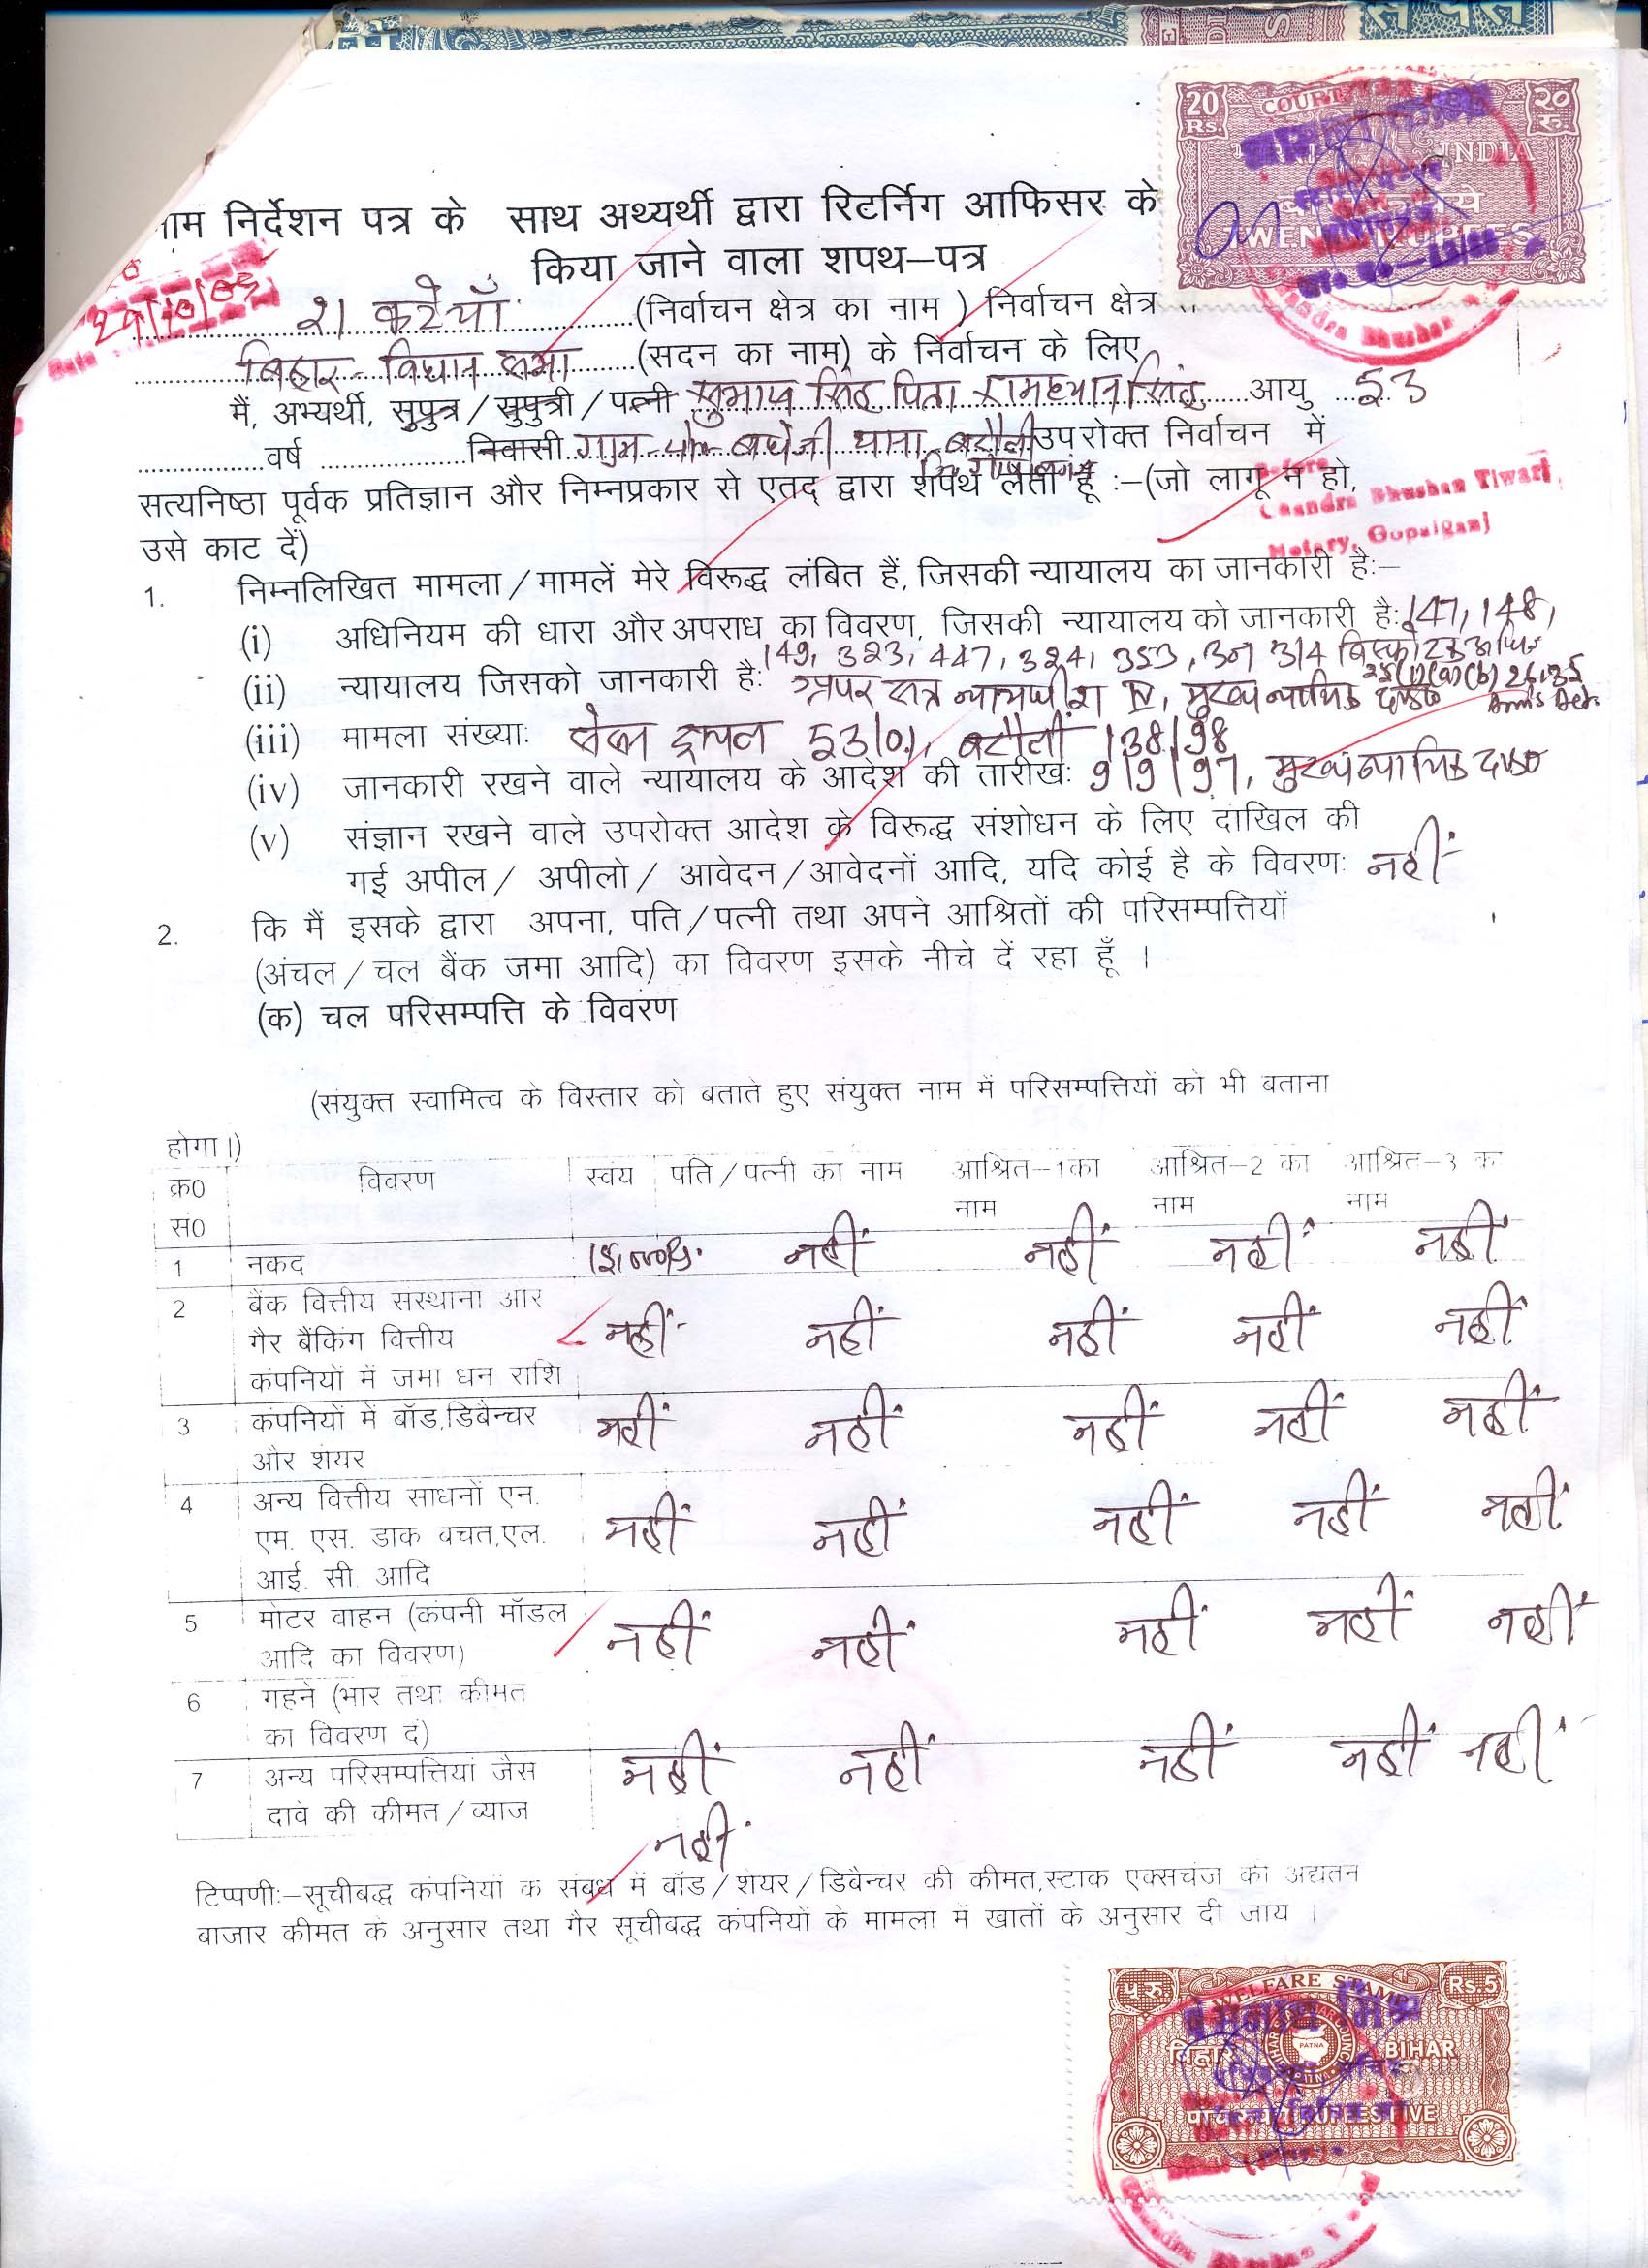 20 Rs. COURT २० रु.
INDIA
नाम निर्देशन पत्र के साथ अथ्यर्थी द्वारा रिटर्निग आफिसर के
किया जाने वाला शपथ–पत्र
21 कटेयाँ (निर्वाचन क्षेत्र का नाम ) निर्वाचन क्षेत्र
बिहार - विधान सभा (सदन का नाम) के निर्वाचन के लिए
मैं, अभ्यर्थी, सुपुत्र/सुपुत्री/पत्नी सुभाष सिंह पिता रामध्यान सिंह आयु 53
वर्ष निवासी ग्राम-पो०- बघेजी थाना- उपरोक्त निर्वाचन में
सत्यनिष्ठा पूर्वक प्रतिज्ञान और निम्नप्रकार से एतद् द्वारा शपथ लेता हूँ :–(जो लागू न हो,
उसे काट दें)
Before
Chandra Bhushan Tiwari,
Notary, Gopalganj
1. निम्नलिखित मामला/मामलें मेरे विरूद्ध लंबित हैं, जिसकी न्यायालय का जानकारी है:–
(i) अधिनियम की धारा और अपराध का विवरण, जिसकी न्यायालय को जानकारी है: 147, 148,
149, 323, 447, 324, 353, 307
(ii) न्यायालय जिसको जानकारी है: अपर सत्र न्यायधीश IV, मुख्य न्यायिक दण्डा०
(iii) मामला संख्याः सेसन ट्रायल 53/01, 138/98
(iv) जानकारी रखने वाले न्यायालय के आदेश की तारीखः 9/9/97, मुख्य न्यायिक दण्डा०
(v) संज्ञान रखने वाले उपरोक्त आदेश के विरूद्ध संशोधन के लिए दाखिल की
गई अपील/ अपीलो/ आवेदन/आवेदनों आदि, यदि कोई है के विवरणः नहीं
2. कि मैं इसके द्वारा अपना, पति/पत्नी तथा अपने आश्रितों की परिसम्पत्तियों
(अंचल/चल बैंक जमा आदि) का विवरण इसके नीचे दें रहा हूँ ।
(क) चल परिसम्पत्ति के विवरण
(संयुक्त स्वामित्व के विस्तार को बताते हुए संयुक्त नाम में परिसम्पत्तियों को भी बताना
होगा।)
क्र0 सं0 विवरण स्वंय पति/पत्नी का नाम आश्रित–1का नाम आश्रित–2 का नाम आश्रित–3 का नाम
1 नकद नहीं नहीं नहीं नहीं
2 बैंक वित्तीय संस्थानों और
गैर बैंकिंग वित्तीय नहीं नहीं नहीं नहीं नहीं
कंपनियों में जमा धन राशि
3 कंपनियों में बॉड,डिबेन्चर नहीं नहीं नहीं नहीं नहीं
और शेयर
4 अन्य वित्तीय साधनों एन.
एम. एस. डाक बचत,एल. नहीं नहीं नहीं नहीं नहीं
आई. सी. आदि
5 मोटर वाहन (कंपनी मॉडल नहीं नहीं नहीं नहीं नहीं
आदि का विवरण)
6 गहने (भार तथा कीमत
का विवरण दें)
7 अन्य परिसम्पत्तियां जैसे नहीं नहीं नहीं नहीं नहीं
दावे की कीमत/व्याज
नहीं
टिप्पणीः–सूचीबद्ध कंपनियों के संबंध में बॉड/शेयर/डिबैन्चर की कीमत,स्टाक एक्सचेंज की अद्यतन
बाजार कीमत के अनुसार तथा गैर सूचीबद्ध कंपनियों के मामलों में खातों के अनुसार दी जाय ।
प रु. WELFARE STAMP Rs.5
बिहार PATNA BIHAR
RUPEES FIVE